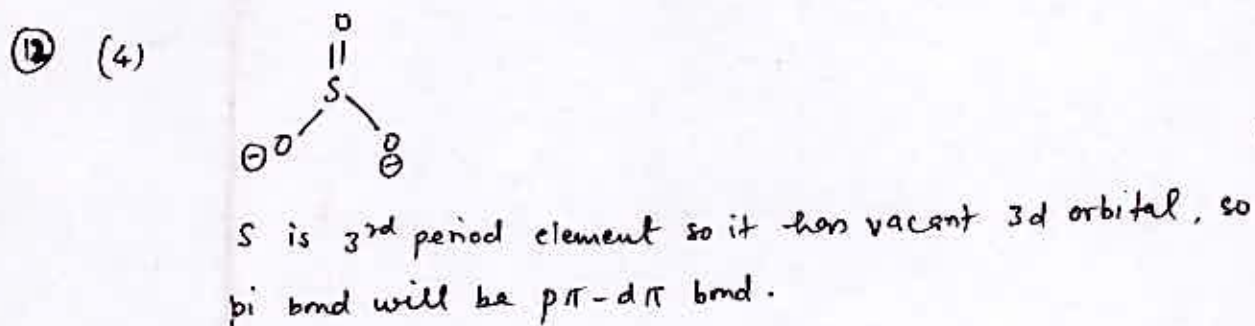 12 (4)
O
||
S
⊖O O
⊖
S is 3rd period element so it has vacant 3d orbital, so
pi bond will be pπ-dπ bond.